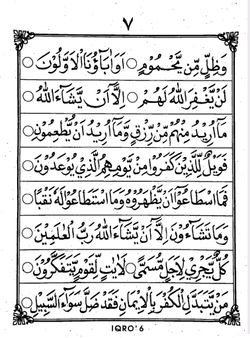 ٧
وَظِلٍّ مِّنْ يَّحْمُوْمٍ ○ اَوَاٰبَآؤُنَا الْاَوَّلُوْنَ ○
لَنْ يَّغْفِرَ اللّٰهُ لَهُمْ ○ اِلَّآ اَنْ يَّشَآءَ اللّٰهُ
مَآ اُرِيْدُ مِنْهُمْ مِّنْ رِّزْقٍ وَّمَآ اُرِيْدُ اَنْ يُّطْعِمُوْنِ ○
فَوَيْلٌ لِّلَّذِيْنَ كَفَرُوْا مِنْ يَّوْمِهِمُ الَّذِيْ يُوْعَدُوْنَ ○
فَمَا اسْطَاعُوْٓا اَنْ يَّظْهَرُوْهُ وَمَا اسْتَطَاعُوْا لَهٗ نَقْبًا ○
وَمَا تَشَآءُوْنَ اِلَّآ اَنْ يَّشَآءَ اللّٰهُ رَبُّ الْعٰلَمِيْنَ ○
كُلٌّ يَّجْرِيْ لِاَجَلٍ مُّسَمًّى ○ لَاٰيٰتٍ لِّقَوْمٍ يَّتَفَكَّرُوْنَ ○
مَنْ يَّتَبَدَّلِ الْكُفْرَ بِالْاِيْمَانِ فَقَدْ ضَلَّ سَوَآءَ السَّبِيْلِ
IQRO'6